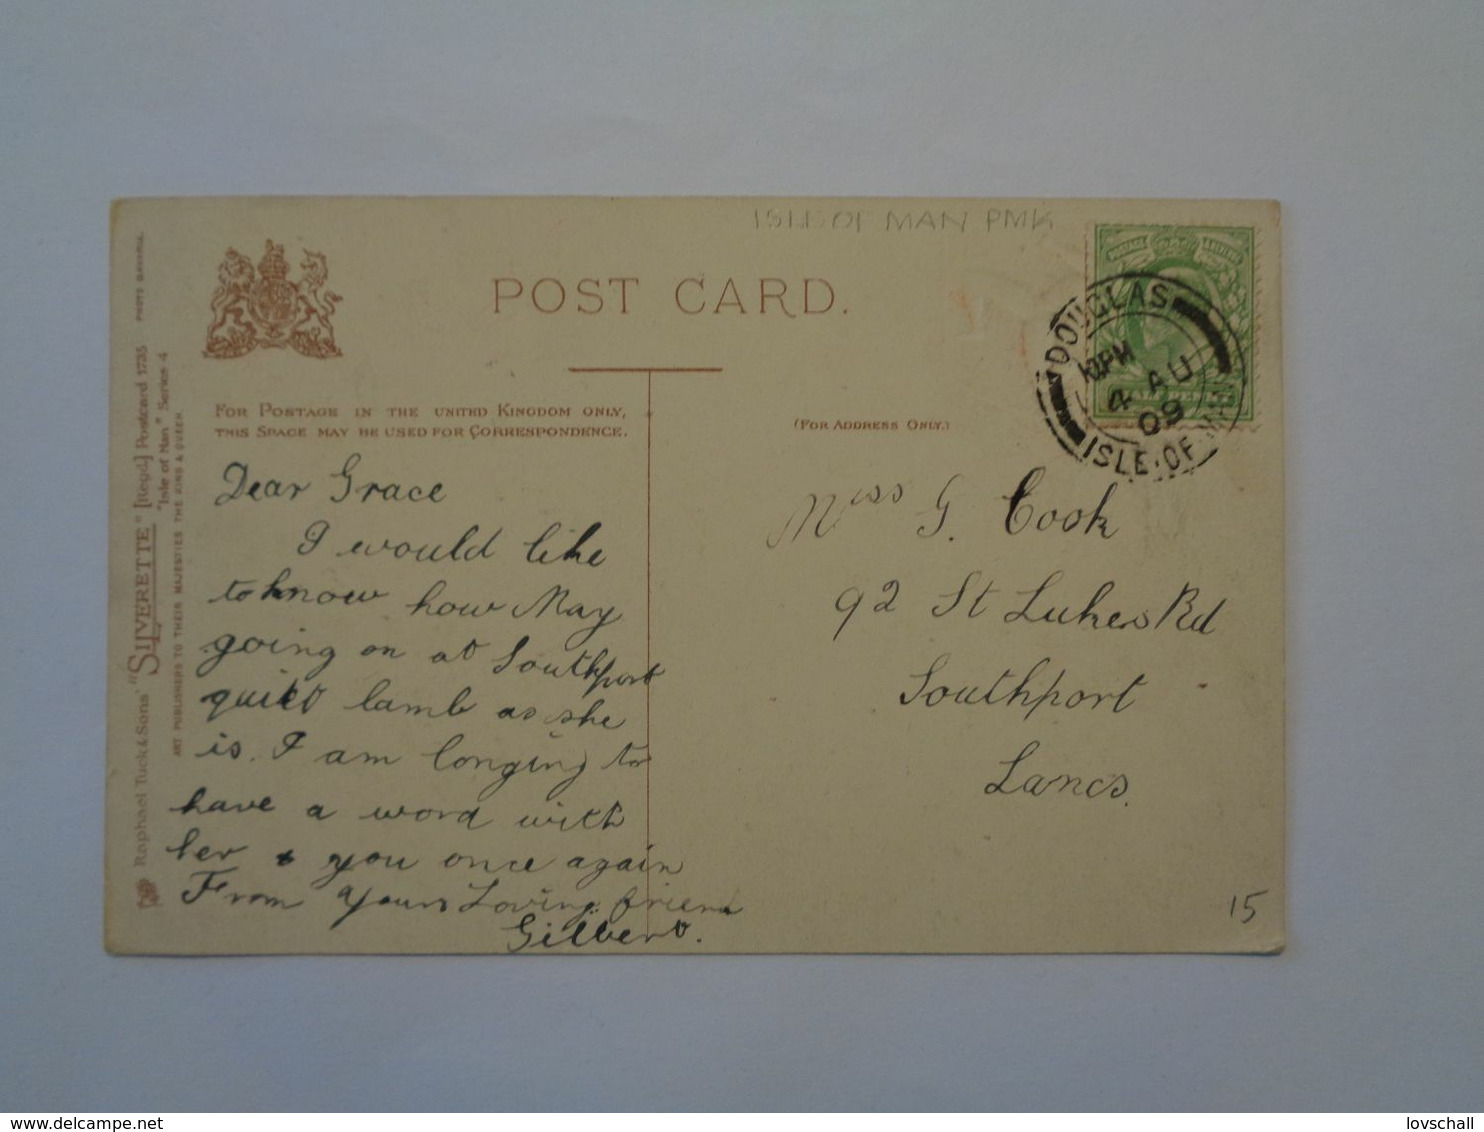 ISLE OF MAN PMK
POST CARD.
FOR POSTAGE IN THE UNITED KINGDOM ONLY,
THIS SPACE MAY BE USED FOR CORRESPONDENCE.
(FOR ADDRESS ONLY.)
Dear Grace
I would like
to know how May
going on at Southport
quiet lamb as she
is. I am longing to
have a word with
her & you once again
From Yours Loving friend
Gilbert.
Miss G. Cook
92 St Lukes Rd
Southport
Lancs.
15
DOUGLAS
10PM
4 AU
09
ISLE OF MAN
POSTAGE
HALF PENNY
Raphael Tuck & Sons' "SILVERETTE" [Regd] Postcard 1735
"Isle of Man" Series 4
ART PUBLISHERS TO THEIR MAJESTIES THE KING & QUEEN.
lovschall